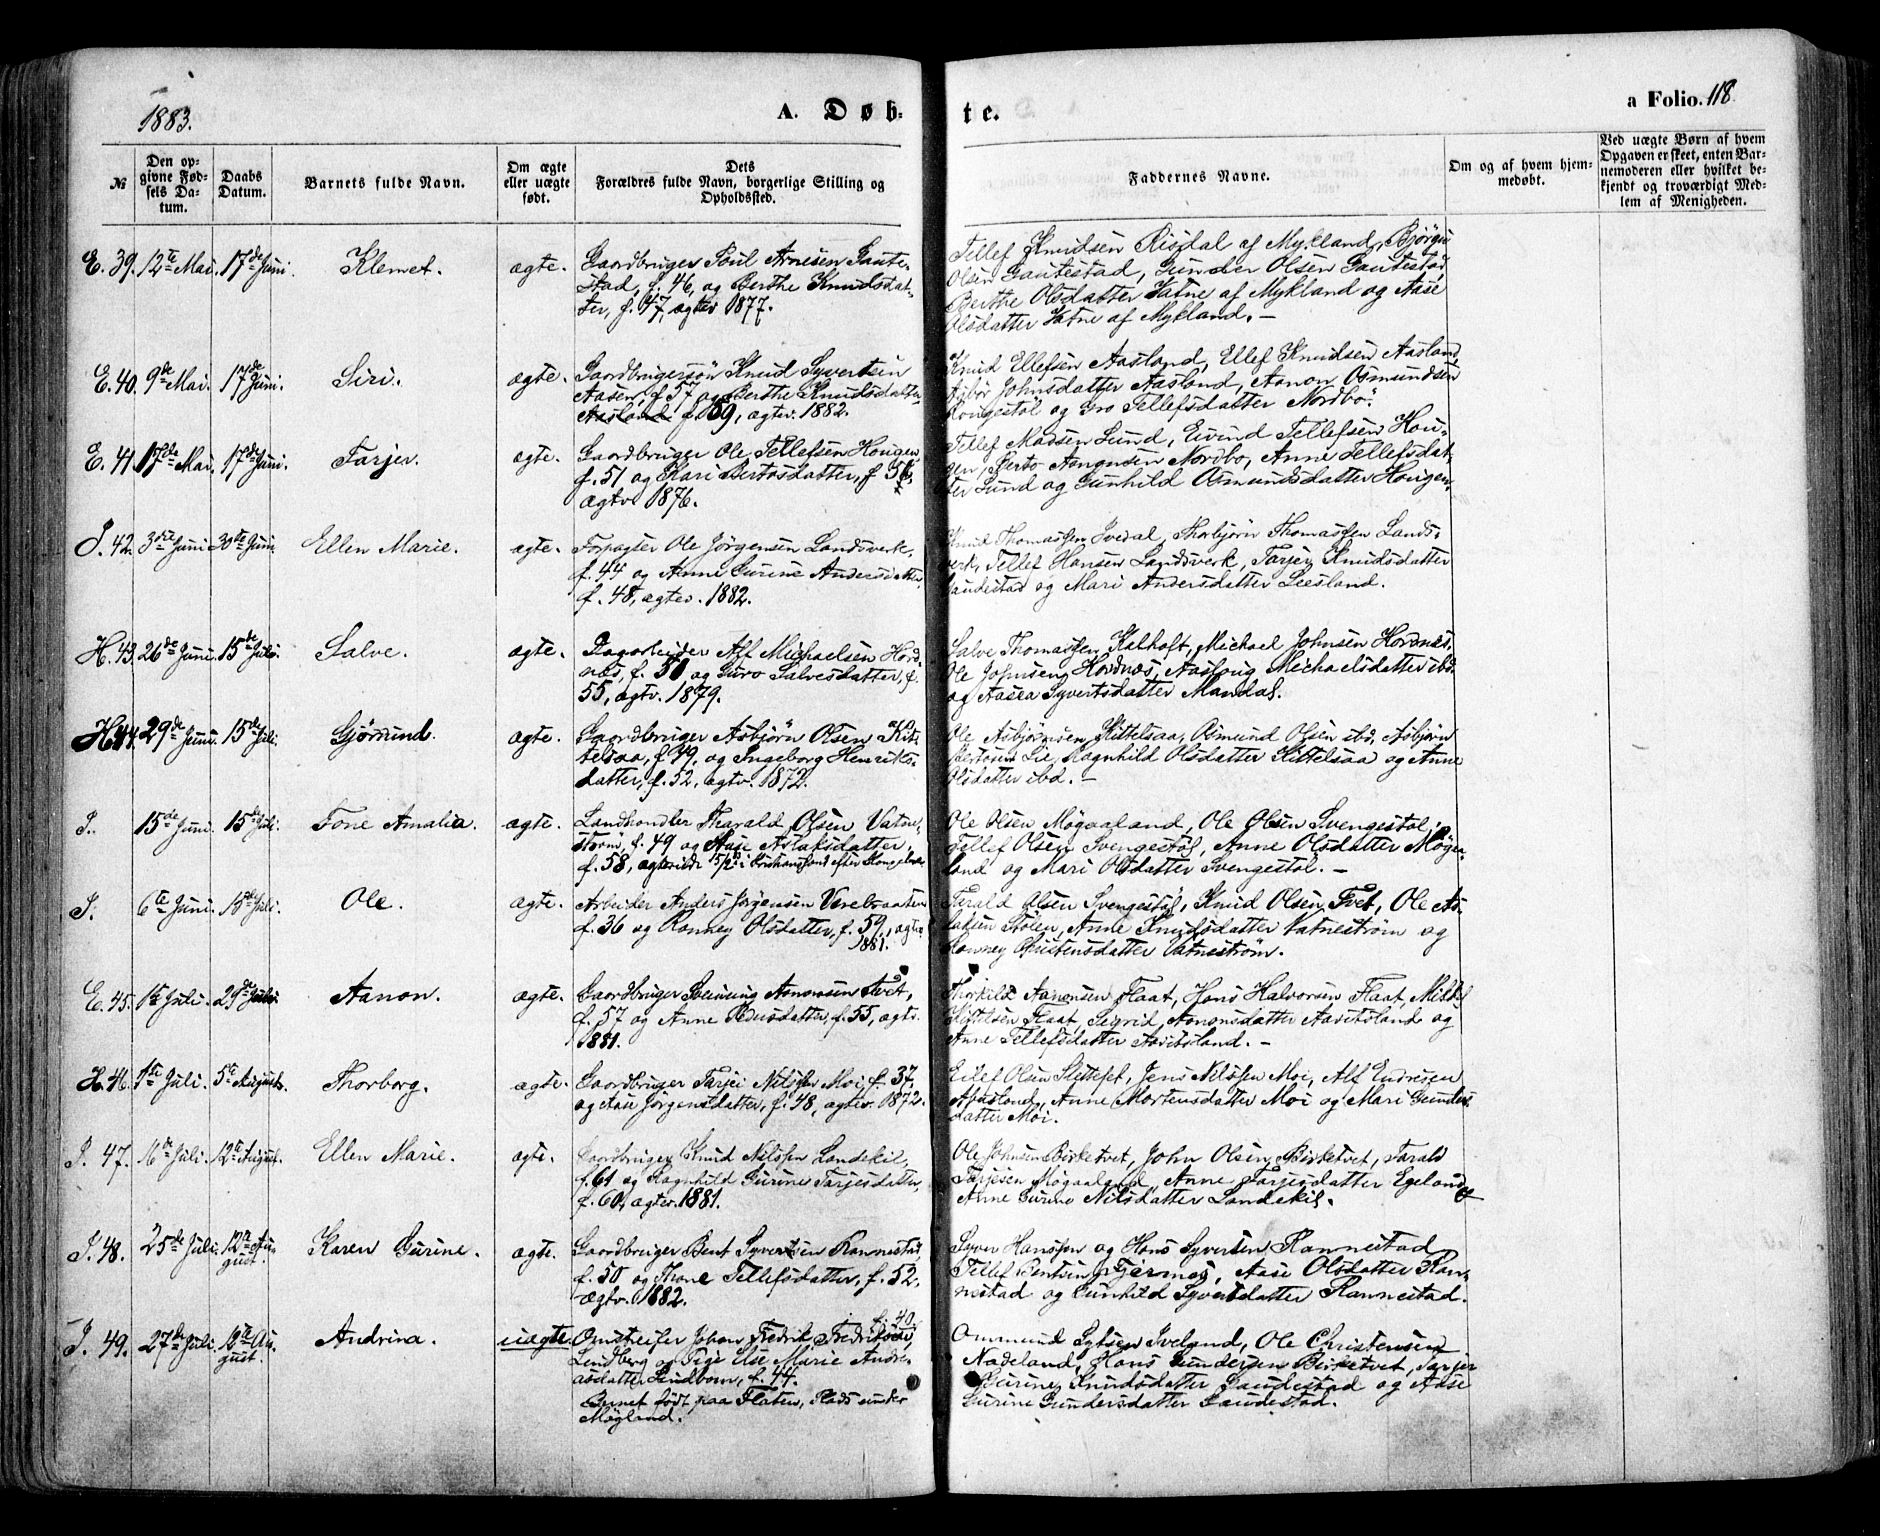 1883.
A. Døb-
te.
a Folio. 118
№
Den op-
givne Fød-
sels Da-
tum.
Daabs
Datum.
Barnets fulde Navn.
Om ægte
eller uægte
født.
Dets
Forældres fulde Navn, borgerlige Stilling og
Opholdssted.
Faddernes Navne.
Om og af hvem hjem-
medøbt.
Ved uægte Børn af hvem
Opgaven er skeet, enten Bar-
nemoderen eller hvilket be-
kjendt og troværdigt Med-
lem af Menigheden.
E. 39. 12te Mai. 17de Juni. Klemet. ægte.
Gaardbruger Poul Arnesen Gaute-
stad, f. 46, og Berthe Knudsdat-
ter, f. 47, ægtev 1877.
Tellef Knudsen Risdal af Mykland, Bjørgu
Olsen Gautestad, Gunder Olsen Gautestad,
Berthe Olsdatter Vatne af Mykland og Aase
Olsdatter Vatne af Mykland. –
E. 40. 9de Mai. 17de Juni. Siri. ægte.
Gaardbrugersøn Knud Syvertsen
Aasen, f. 57 og Berthe Knudsdatter
Aasland f. 59, ægtev. 1882.
Knud Ellefsen Aasland, Ellef Knudsen Aasland,
Asbør Johnsdatter Aasland, Aanon Osmundsen
Kongestøl og Gro Tellefsdatter Nordbø.
E. 41. 17de Mai. 17de Juni. Tarjer. ægte.
Gaardbruger Ole Tellefsen Hougen,
f. 51 og Kari Bertosdatter, f 56,
ægtv. 1876.
Tellef Madsen Lund, Eivind Tellefsen Hou-
gen, Berto Aanonsen Nordbø, Anne Tellefsdat-
ter Lund og Gunhild Osmundsdatter Hougen.
I. 42. 3die Juni 30te Juni Ellen Marie. ægte.
Forpagter Ole Jørgensen Landsverk,
f. 44 og Anne Gurine Andersdatter,
f. 48, ægtev. 1882.
Knud Thomassen Ivedal, Thorbjørn Thomassen Lands-
verk, Tellef Hansen Landsverk, Tarjer Knudsdatter
Gaudestad og Mari Andersdatter Leesland.
H. 43. 26de Juni. 15de Juli. Salve. ægte.
Dagarbeider Alf Michaelsen Hord-
næs, f. 51 og Guro Salvesdatter, f.
55, ægtv. 1879.
Salve Thomassen Kalhoft, Michael Johnsen Hordnæs,
Ole Johnsen Hordnæs, Aaslaug Michaelsdatter ibd.
og Aasea Syvertsdatter Mandal.
H 44. 29de Juni. 15de Juli. Gjørund. ægte.
Gaardbruger Asbjørn Olsen Kit-
telsaa, f. 49, og Ingeborg Henriks-
datter, f. 52, ægtv. 1872.
Ole Asbjørnsen Kittelsaa, Osmund Olsen ibd, Asbjørn
Bertosen Lie, Ragnhild Olsdatter Kittelsaa og Anne
Olsdatter ibd. –
I. 15de Juni. 15de Juli. Tone Amalia. ægte.
Landhandler Tharald Olsen Vatne-
strøm, f. 49 og Aase Aslaksdatter,
f. 58,
Ole Olsen Møgaaland, Ole Olsen Svengestøl,
Tellef Olsen Svengestøl, Anne Olsdatter Møgaa-
land og Mari Olsdatter Svengestøl. –
I. 6te Juni. 15de Juli. Ole. ægte.
Arbeider Anders Jørgensen Verebraaten
f. 36 og Ronney Olsdatter, f. 59, ægtv.
1881.
Tarald Olsen Svengestøl, Knud Olsen Tvet, Ole As-
laksen Stølen, Anne Knudsdatter Vatnestrøm og
Ronney Christensdatter Vatnestrøm.
E. 45. 1ste Juli. 29de Juli. Aanon. ægte.
Gaardbruger Svennung Aanonsen Tvet,
f. 57 og Anne Pedersdatter, f. 55, ægtv.
1881.
Thorkild Aanonsen Flaat, Hans Halvorsen Flaat, Mikkel
Kittelsen Flaat, Sigrid Aanonsdatter Aavitsland og
Anne Tellefsdatter Aavitsland. –
H. 46. 1ste Juli. 5te August. Thorborg. ægte.
Gaardbruger Tarjei Nilssen Moi, f. 37,
og Aase Jørgensdatter, f. 48, ægtev. 1872.
Eilef Olsen Slettefet, Jens Nilssen Moi, Alf Endresen
Abusland, Anne Mortensdatter Moi og Mari Gunders-
datter Moi.
I. 47. 16de Juli. 12te August. Ellen Marie. ægte.
Gaardbruger Knud Nilssen Landekil,
f. 61 og Ragnhild Gurine Tarjesdatter,
f. 60, ægtev. 1881.
Ole Johnsen Birketvet, John Olsen Birketvet, Tarald
Tarjesen Møgaaland, Anne Tarjesdatter Egeland og
Anne Gurine Nilsdatter Landekil.
I. 48. 25de Juli. 12te Au-
gust. Karen Gurine. ægte.
Gaardbruger Bent Syvertsen Rannestad,
f. 50 og Thone Tellefsdatter, f. 52,
ægtv. 1882.
Syver Hanssen og Hans Syversen Rannestad
Tellef Bentsen Tjermes, Aase Olsdatter Ran-
nestad og Gunhild Syvertsdatter Rannestad.
I. 49. 27de Juli. 12te Au-
gust. Andrina. uægte.
f. 40.
Omstreifer Johan Fredrik Fredriksen
Lindberg og Pige Else Marie Andre-
asdatter Lindbom, f. 44.
Barnet født paa Flaten, Plads under
Møgland.
Ommund Sylsen Ivelund, Ole Christensen
Nadeland, Hans Gundersen Birketvet, Tarjer
Gurine Knudsdatter Gaudestad og Aase
Gurine Gundersdatter Gaudestad.